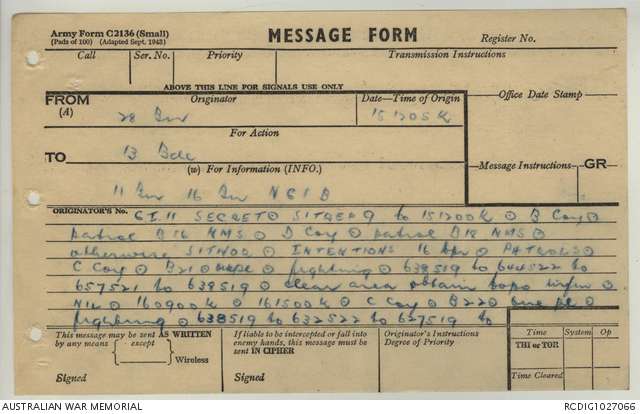 Army Form C2136 (Small)
(Pads of 100) (Adapted Sept. 1943)
MESSAGE FORM
Register No.
Call Ser. No. Priority Transmission Instructions
ABOVE THIS LINE FOR SIGNALS USE ONLY
FROM Originator Date—Time of Origin Office Date Stamp
(A) 28 151205 K
For Action
TO 13 Bde
(w) For Information (INFO.) Message Instructions GR
11 16 NGIB
ORIGINATOR'S No. GI.11 SECRET ⊙ SITREP to 151200K ⊙ B Coy ⊙
patrol B16 NMS ⊙ D Coy ⊙ patrol D18 NMS ⊙
otherwise SITNOR ⊙ INTENTIONS 16 Apr ⊙ PATROLS ⊙
C Coy ⊙ B21 ⊙ fighting ⊙ 638519 to 644522 to
657521 to 638519 ⊙ clear area obtain topo infm ⊙
160900K ⊙ 161500K ⊙ C Coy ⊙ B22 ⊙ one pl ⊙
fighting ⊙ 638519 to 632522 to 627519 to
This message may be sent AS WRITTEN
by any means except
Wireless
Signed
If liable to be intercepted or fall into
enemy hands, this message must be
sent IN CIPHER
Signed
Originator's Instructions
Degree of Priority
Time System Op
THI or TOR
Time Cleared
AUSTRALIAN WAR MEMORIAL RCDIG1027066